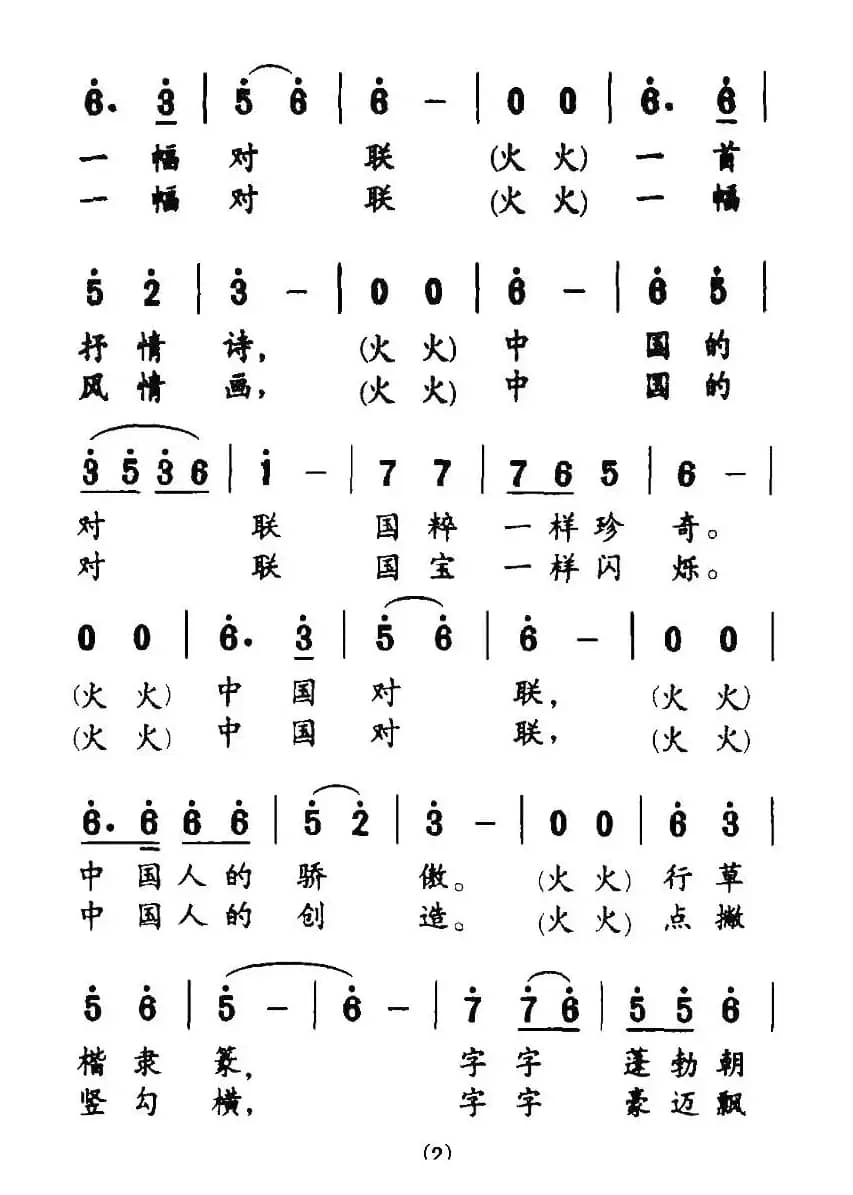 6. 3 | 5 6 | 6 - | 0 0 | 6. 6 |
一幅对联(火火)一首
一幅对联(火火)一幅
5 2 | 3 - | 0 0 | 6 - | 6 5 |
抒情诗,(火火)中国的
风情画,(火火)中国的
3 5 3 6 | 1 - | 7 7 | 7 6 5 | 6 - |
对联国粹一样珍奇。
对联国宝一样闪烁。
0 0 | 6. 3 | 5 6 | 6 - | 0 0 |
(火火)中国对联,(火火)
(火火)中国对联,(火火)
6. 6 6 6 | 5 2 | 3 - | 0 0 | 6 3 |
中国人的骄傲。(火火)行草
中国人的创造。(火火)点撇
5 6 | 5 - | 6 - | 7 7 6 | 5 5 6 |
楷隶篆,字字蓬勃朝
竖勾横,字字豪迈飘
(2)